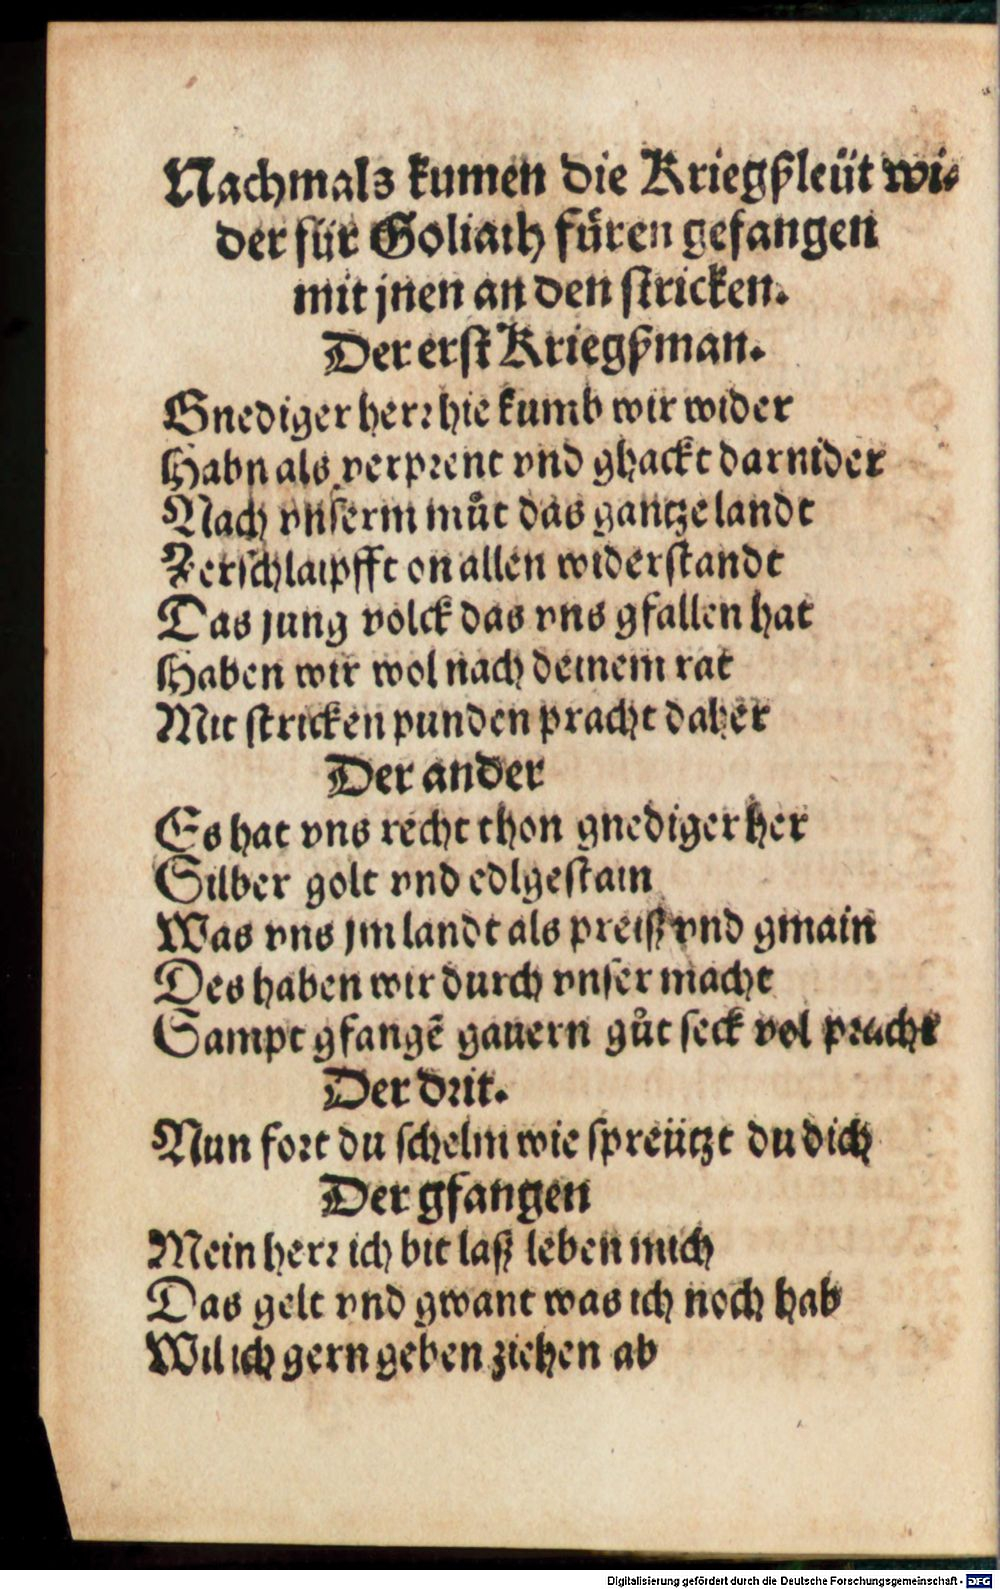 Nachmals kumen die Kriegßleüt wi-
der für Goliath füren gefangen
mit jnen an den stricken.
Der erst Kriegßman.
Gnediger herr hie kumb wir wider
Habn als verprent vnd ghackt darnider
Nach vnserm můt das gantze landt
Zerschlaipfft on allen widerstandt
Das jung volck das vns gfallen hat
Haben wir wol nach deinem rat
Mit stricken punden pracht daher
Der ander
Es hat vns recht thon gnediger her
Silber golt vnd edlgestain
Was vns jm landt als preiß vnd gmain
Des haben wir durch vnser macht
Sampt gfangē gauern gůt seck vol pracht
Der drit.
Nun fort du schelm wie spreützt du dich
Der gfangen
Mein herr ich bit laß leben mich
Das gelt vnd gwant was ich noch hab
Wil ich gern geben ziehen ab
Digitalisierung gefördert durch die Deutsche Forschungsgemeinschaft - DFG